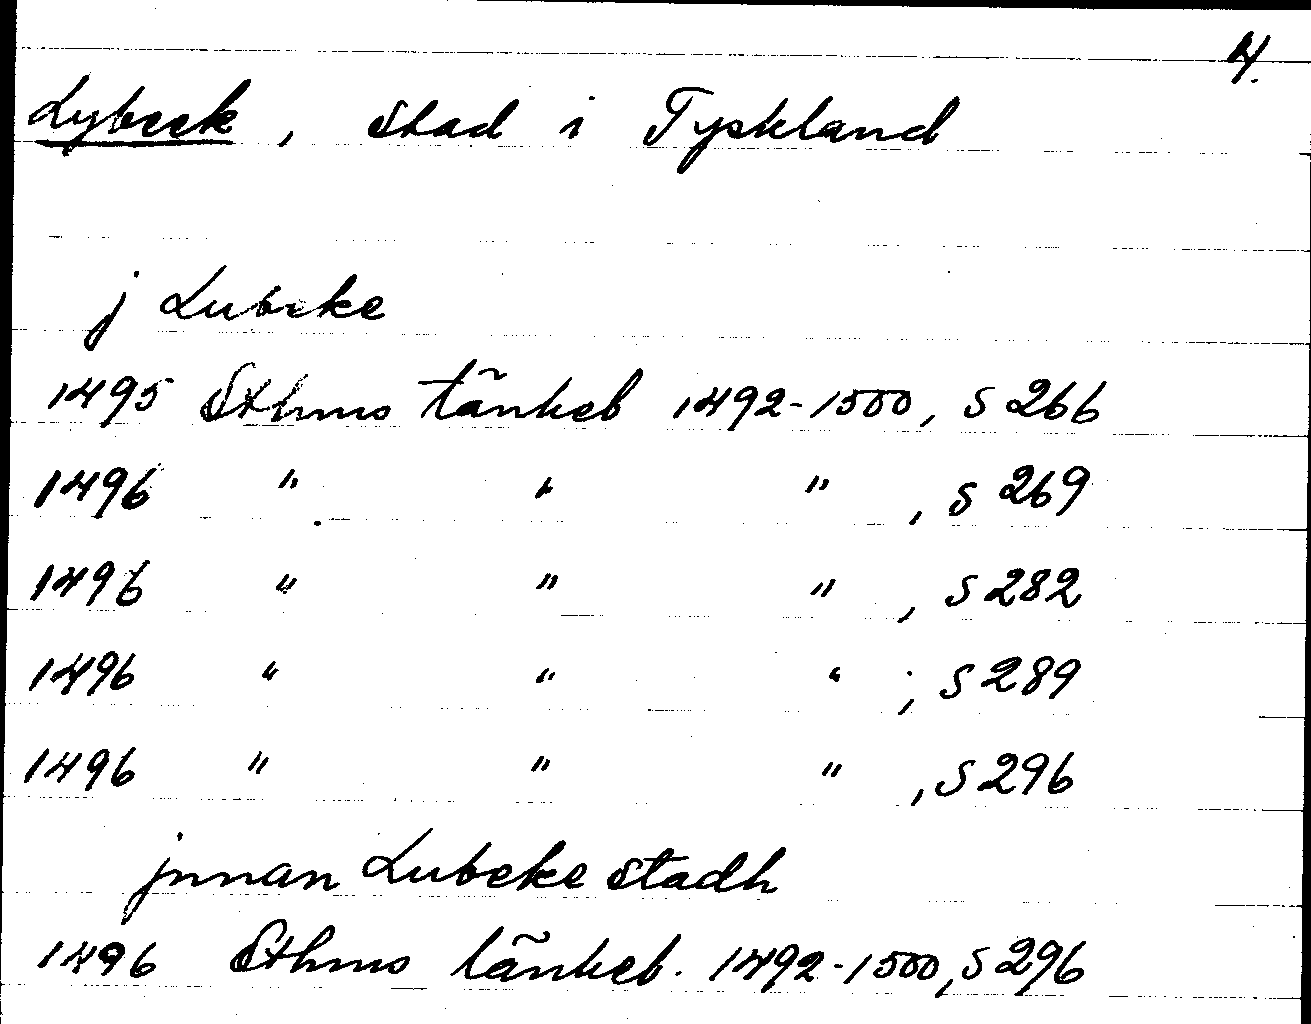 4.
Lybeck, stad i Tyskland
j Lubeke
1495 Sthms tänkeb 1492-1500, s 266
1496 " " " , s 269
1496 " " " , s 282
1496 " " " , s 289
1496 " " " , s 296
jnnan Lubeke stadh
1496 Sthms tänkeb. 1492-1500, s 296